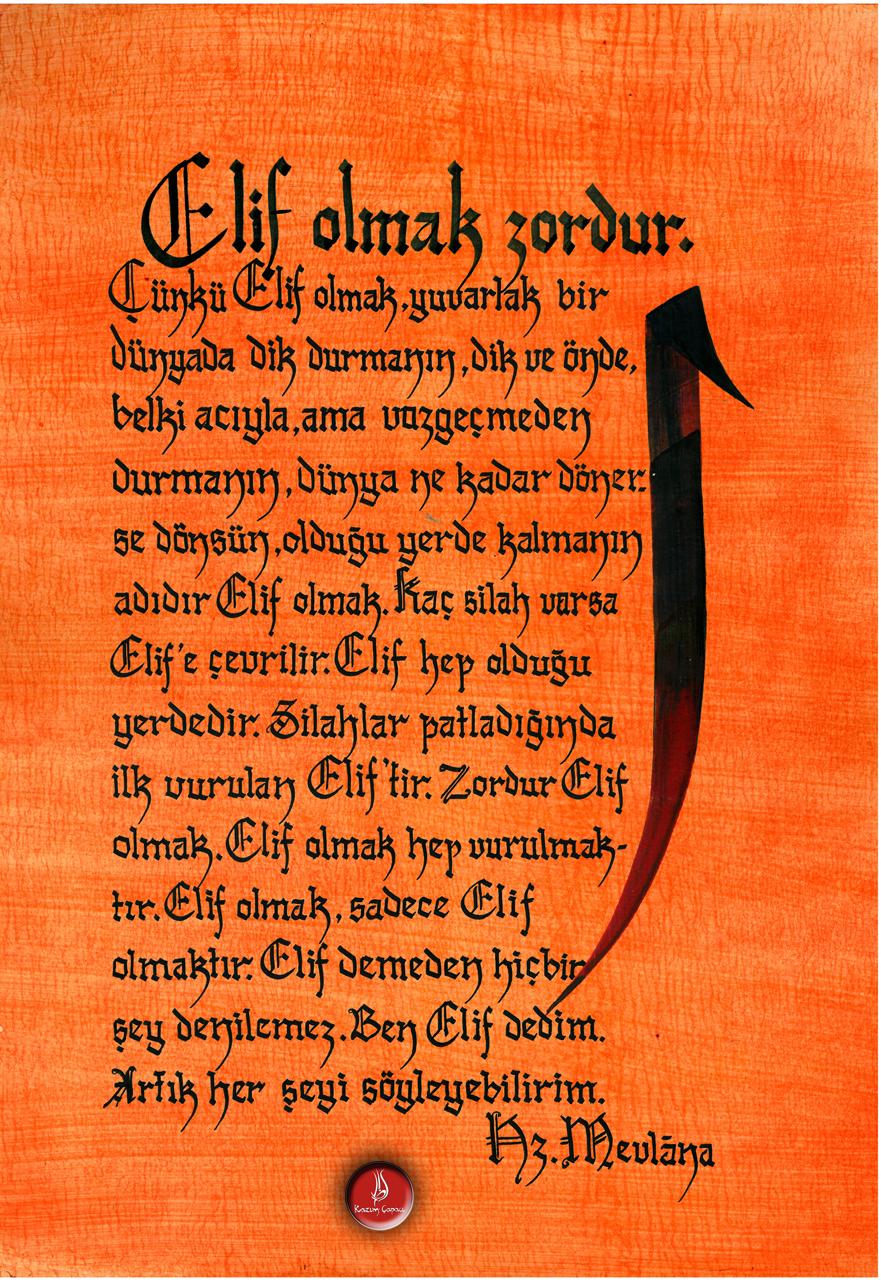 Elif olmak zordur.
Çünkü Elif olmak, yuvarlak bir
dünyada dik durmanın, dik ve önde,
belki acıyla, ama vazgeçmeden
durmanın, dünya ne kadar döner-
se dönsün, olduğu yerde kalmanın
adıdır Elif olmak. Kaç silah varsa
Elif'e çevrilir. Elif hep olduğu
yerdedir. Silahlar patladığında
ilk vurulan Elif'tir. Zordur Elif
olmak. Elif olmak hep vurulmak-
tır. Elif olmak, sadece Elif
olmaktır. Elif demeden hiçbir
şey denilemez. Ben Elif dedim.
Artık her şeyi söyleyebilirim.
Hz. Mevlâna